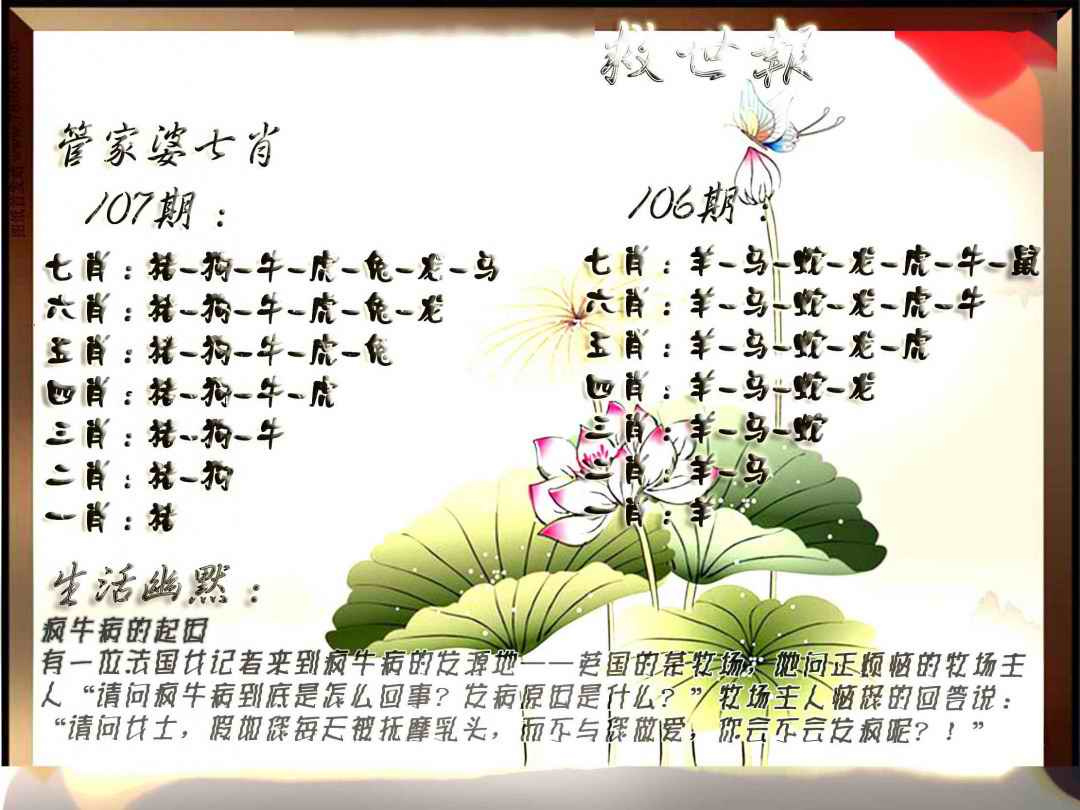 救世報
管家婆七肖
107期：
七肖：猪-狗-牛-虎-兔-龙-马
六肖：猪-狗-牛-虎-兔-龙
五肖：猪-狗-牛-虎-兔
四肖：猪-狗-牛-虎
三肖：猪-狗-牛
二肖：猪-狗
一肖：猪
106期：
七肖：羊-马-蛇-龙-虎-牛-鼠
六肖：羊-马-蛇-龙-虎-牛
五肖：羊-马-蛇-龙-虎
四肖：羊-马-蛇-龙
三肖：羊-马-蛇
二肖：羊-马
一肖：羊
生活幽默：
疯牛病的起因
有一位法国女记者来到疯牛病的发源地——英国的某牧场，她问正烦恼的牧场主
人“请问疯牛病到底是怎么回事？发病原因是什么？”牧场主人恼怒的回答说：
“请问女士，假如您每天被抚摩乳头，而不与您做爱，你会不会发疯呢？！”